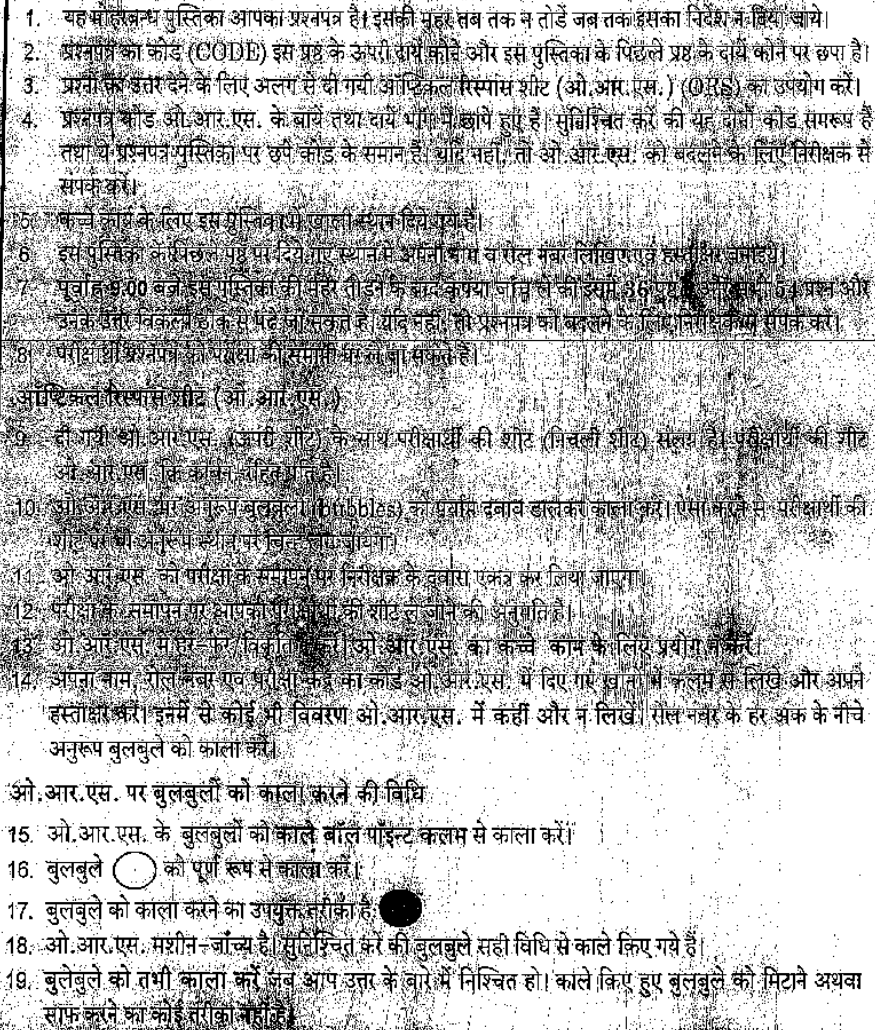 1. यह मोहरबन्ध पुस्तिका आपका प्रश्नपत्र है। इसकी मुहर तब तक न तोडें जब तक इसका निर्देश न दिया जाये।
2. प्रश्नपत्र का कोड (CODE) इस पृष्ठ के ऊपरी दायें कोने और इस पुस्तिका के पिछले पृष्ठ के दायें कोने पर छपा है।
3. प्रश्नों का उत्तर देने के लिए अलग से दी गयी ऑप्टिकल रिस्पांस शीट (ओ.आर.एस.) (ORS) का उपयोग करें।
4. प्रश्नपत्र कोड ओ.आर.एस. के बायें तथा दायें भाग में छापे हुए है। सुनिश्चित करें की यह दोनों कोड समरूप हैं
तथा ये प्रश्नपत्र पुस्तिका पर छपे कोड के समान है। यदि नहीं, तो ओ.आर.एस. को बदलने के लिए निरीक्षक से
संपर्क करें।
5. कच्चे कार्य के लिए इस पुस्तिका में खाली स्थान दिये गये हैं।
6. इस पुस्तिका के पिछले पृष्ठ पर दिये गए स्थान में अपना नाम व रोल नंबर लिखिए एवं हस्ताक्षर बनाइये।
7. पूर्वाह्न 9:00 बजे इस पुस्तिका की महर तोड़ने के बाद कृपया जाँच लें की इसमें 36 पृष्ठ हैं और सभी 54 प्रश्न और
उनके उत्तर विकल्प ठीक से पढ़े जा सकते हैं। यदि नहीं, तो प्रश्नपत्र को बदलने के लिए निरीक्षक से संपर्क करें।
8. परीक्षार्थी प्रश्नपत्र को परीक्षा की समाप्ति पर ले जा सकते हैं।
ऑप्टिकल रिस्पांस शीट (ओ.आर.एस.)
9. दी गयी ओ.आर.एस. (ऊपरी शीट) के साथ परीक्षार्थी की शीट (निचली शीट) संलग्न है। परीक्षार्थी की शीट
ओ.आर.एस. कि कार्बन-रहित प्रति है।
10. ओ.आर.एस. पर अनुरूप बुलबुलों (bubbles) को पर्याप्त दबाव डालकर काला करें। ऐसा करने से परीक्षार्थी की
शीट पर भी अनुरूप स्थान पर चिन्ह लग जायेगा।
11. ओ.आर.एस. को परीक्षा के समापन पर निरीक्षक के द्वारा एकत्र कर लिया जाएगा।
12. परीक्षा के समापन पर आपको परीक्षार्थी की शीट ले जाने की अनुमति है।
13. ओ.आर.एस. में हेर-फेर/विकृति न करें। ओ.आर.एस. का कच्चे काम के लिए प्रयोग न करें।
14. अपना नाम, रोल नंबर एवं परीक्षा केंद्र का कोड ओ.आर.एस. में दिए गए खानों में कलम से लिखें और अपने
हस्ताक्षर करें। इनमें से कोई भी विवरण ओ.आर.एस. में कहीं और न लिखें। रोल नंबर के हर अंक के नीचे
अनुरूप बुलबुले को काला करें।
ओ.आर.एस. पर बुलबुलों को काला करने की विधि
15. ओ.आर.एस. के बुलबुलों को काले बॉल पॉइन्ट कलम से काला करें।
16. बुलबुले को पूर्ण रूप से काला करें।
17. बुलबुले को काला करने का उपयुक्त तरीका है:
18. ओ.आर.एस. मशीन-जाँच्य है। सुनिश्चित करें की बुलबुले सही विधि से काले किए गये हैं।
19. बुलेबुले को तभी काला करें जब आप उत्तर के बारे में निश्चित हो। काले किए हुए बुलबुले को मिटाने अथवा
साफ करने का कोई तरीका नहीं है।